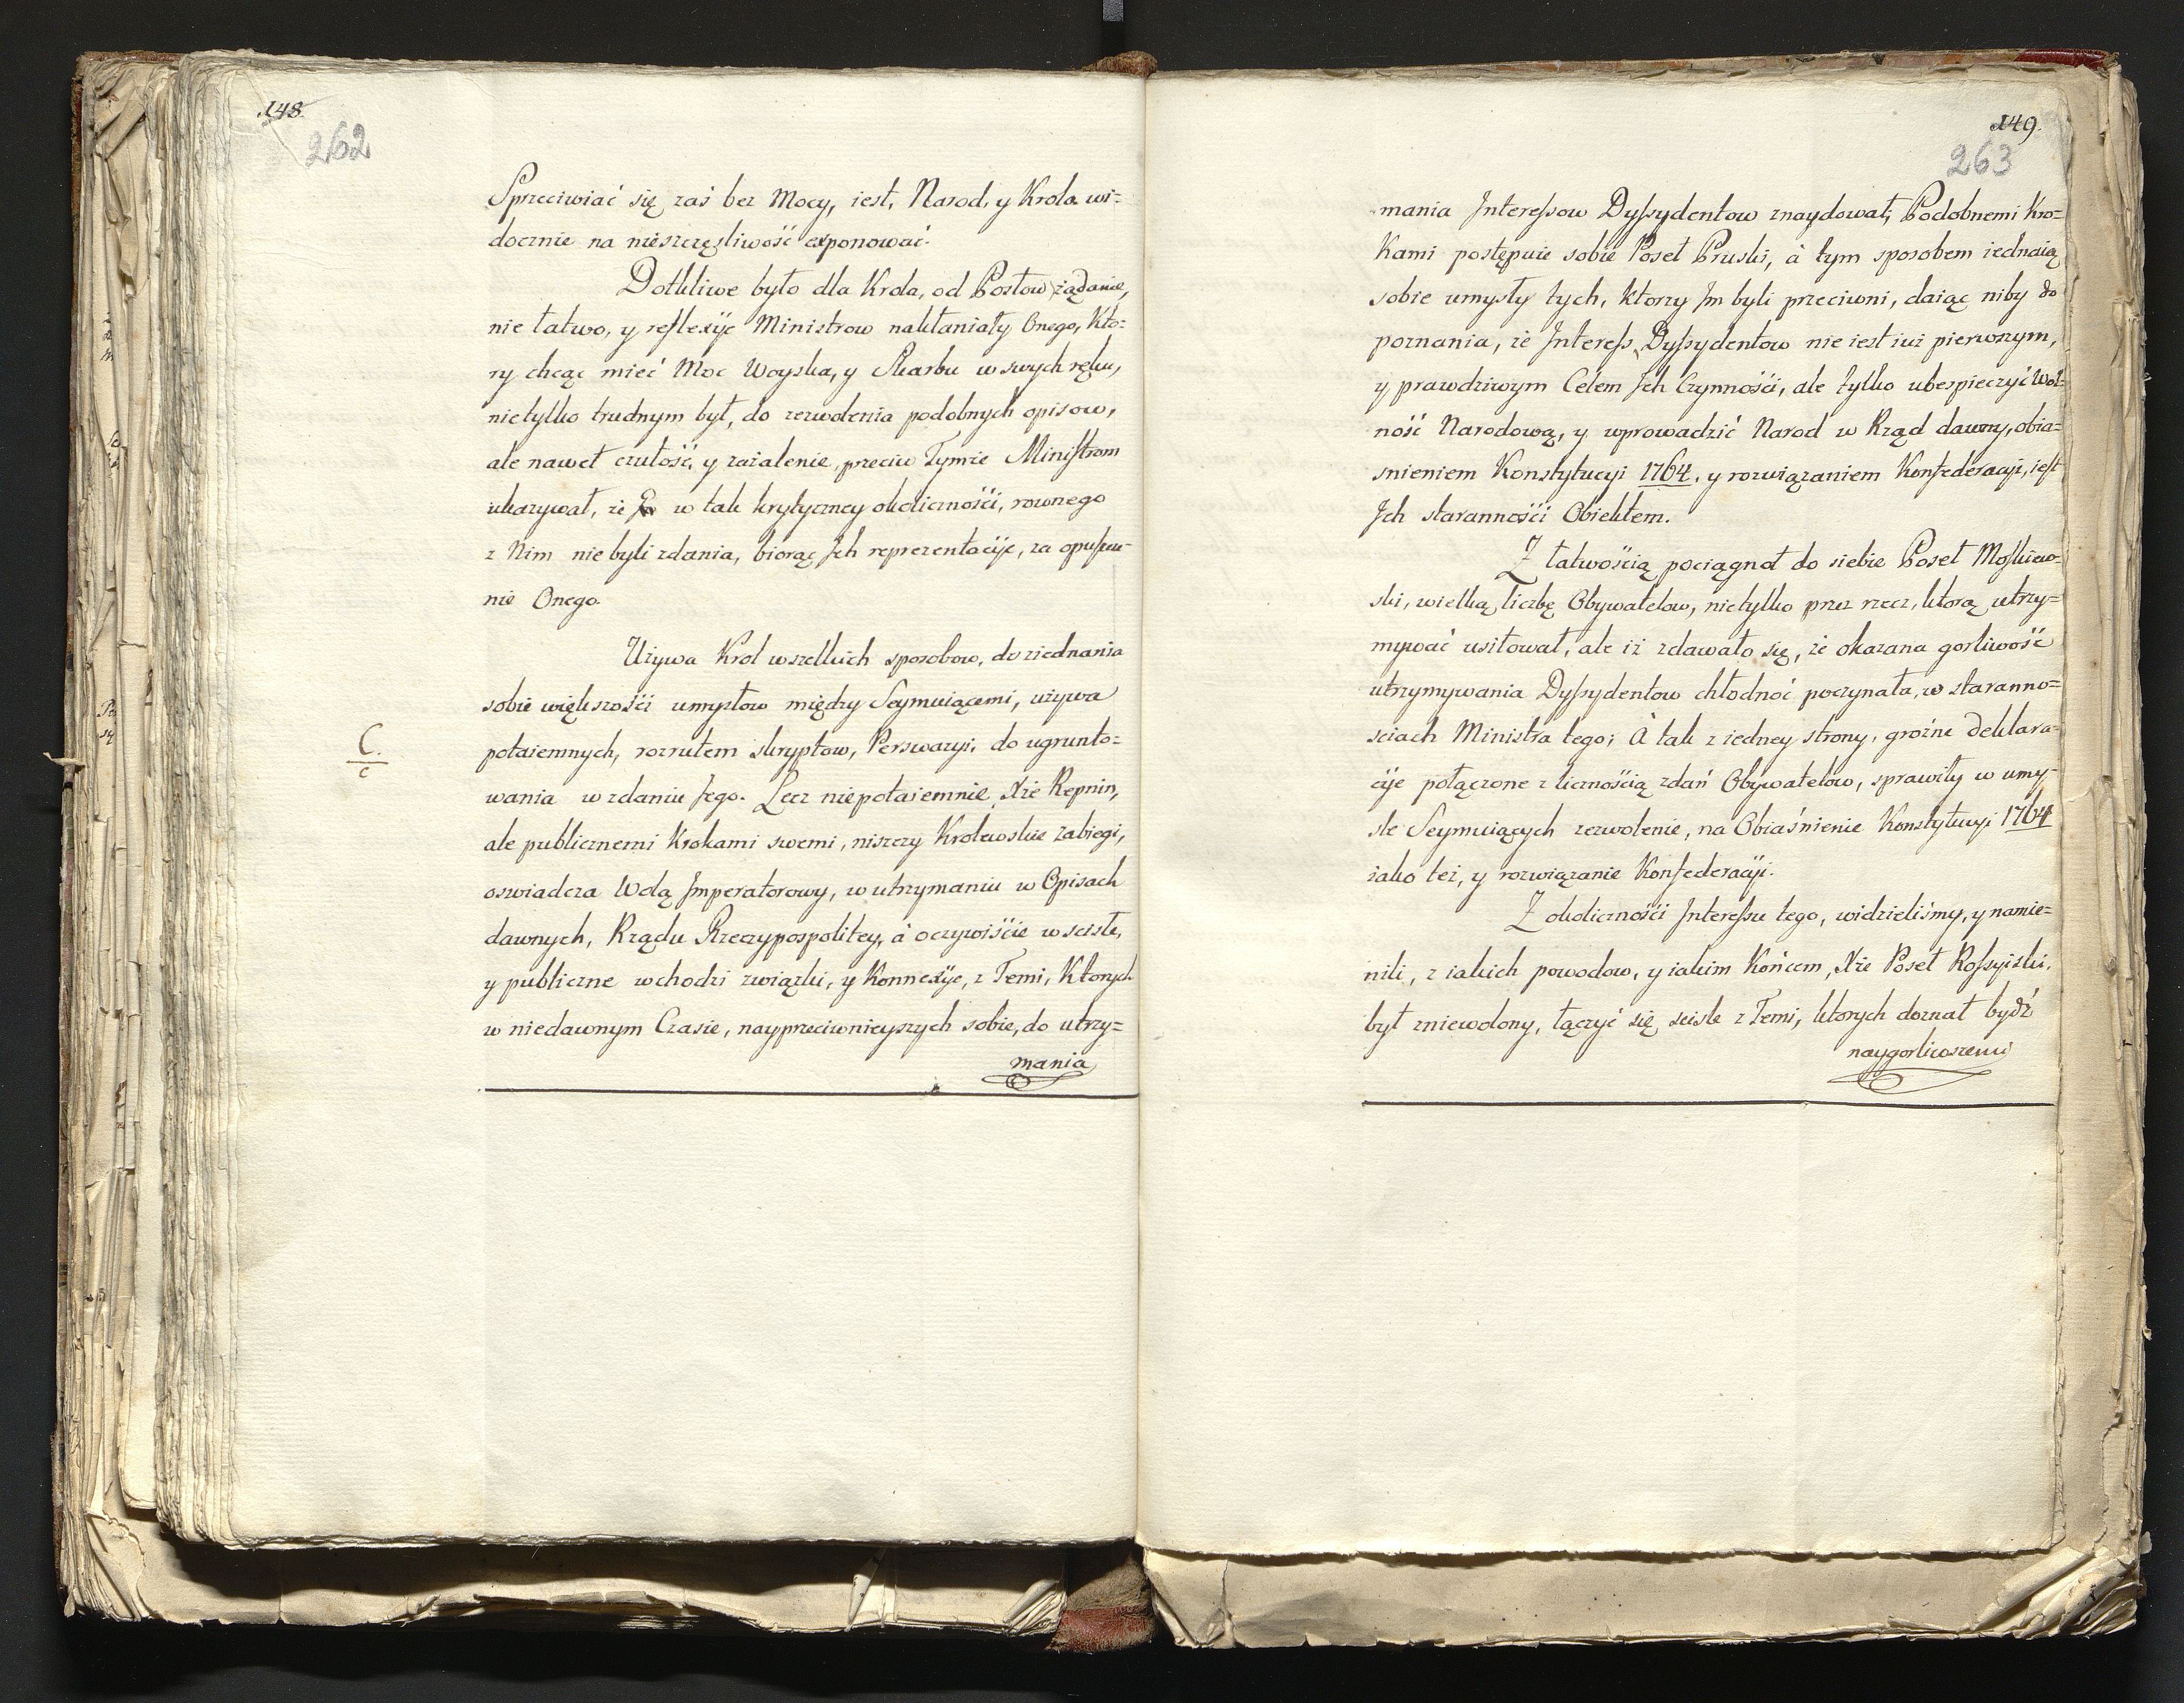 148.
262
Sprzeciwiać się zaś bez Mocy, iest, Narod, y Krola wi=
docznie na nieszczęsliwość exponować.
Dotkliwe było dla Krola, od Posłow żądanie,
nie łatwo, y reflexÿe Ministrow nakłaniały Onego, Kto=
ry chcąc mieć Moc Woyska, y Skarbu w swych ręku,
nietylko trudnym był, do zezwolenia podobnych opisow,
ale nawet czułość, y zażalenie, przeciw Tymże Ministrom
ukazywał, że w tak krytyczney okoliczności, rownego
z Nim nie byli zdania, biorąc Jch reprezentacÿe, za opuszcze=
nie Onego.
Używa Krol wszelkich sposobow, do ziednania
sobie większości umysłow między Seymuiącemi, używa
potaiemnych, rozrutem skryptow, Perswazyi, do ugrunto=
wania w zdaniu Jego. Lecz niepotaiemnie Xże Repnin,
ale publicznemi Krokami swemi, niszczy Krolewskie zabiegi,
oswiadcza Wolą Jmperatorowy, w utrzymaniu w Opisach
dawnych, Rządu Rzeczypospolitey, à oczywiście w scisłe,
y publiczne wchodzi związki, y Konnexÿe, z Temi, Ktorych
w niedawnym Czasie, nayprzeciwnieyszych sobie, do utrzy=
mania
C.
c
149.
263
mania Jnteressow Dyssydentow znaydował, Podobnemi Kro=
Kami postępuie sobie Poseł Pruski, à tym sposobem iednaią
sobie umysły tych, Ktorzy Jm byli przeciwni, daiąc niby do
poznania, że Jnteress Dyssydentow nie iest iuż pierwszym,
y prawdziwym Celem Jch Czynności, ale tylko ubezpieczyć Wol=
ność Narodową, y wprowadzić Narod w Rząd dawny, obia=
snieniem Konstytucyi 1764. y rozwiązaniem Konfederacyi, iest
Jch staranności Obiektem.
Z łatwością pociągnoł do siebie Poseł Moskiew=
ski, wielką liczbę Obywatelow, nietylko przez rzecz, ktorą utrzy=
mywać usiłował, ale iż zdawało się, że okazana gorliwość
utrzymywania Dyssydentow chłodnoć poczynała, w staranno=
sciach Ministra tego; À tak z iedney strony, groźne Deklara=
cÿe połączone z licznością zdań Obywatelow, sprawiły w umy=
sle Seymuiących zezwolenie, na Obiaśnienie Konstytucyi 1764
iako też, y rozwiązanie Konfederacÿi.
Z okoliczności Jnteressu tego, widzieliśmy, y namie=
nili, z iakich powodow, y iakim Końcem, Xże Poseł Rossyiski,
był zniewolony, łączyć się scisle z Temi, ktorych doznał bydź
naygorliwszemi